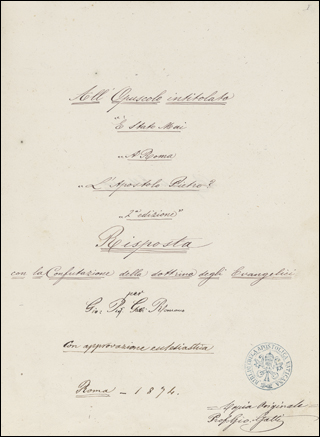 All' Opuscolo intitolato
"È Stato Mai
"A Roma
"L'Apostolo Pietro?
"2ª edizione"
Risposta
con la Confutazione delle dottrine degli Evangelici
per
Gio: Romana
Con approvazione ecclesiastica
Roma — 1874.
Copia Originale
Prof. Gio. Galli